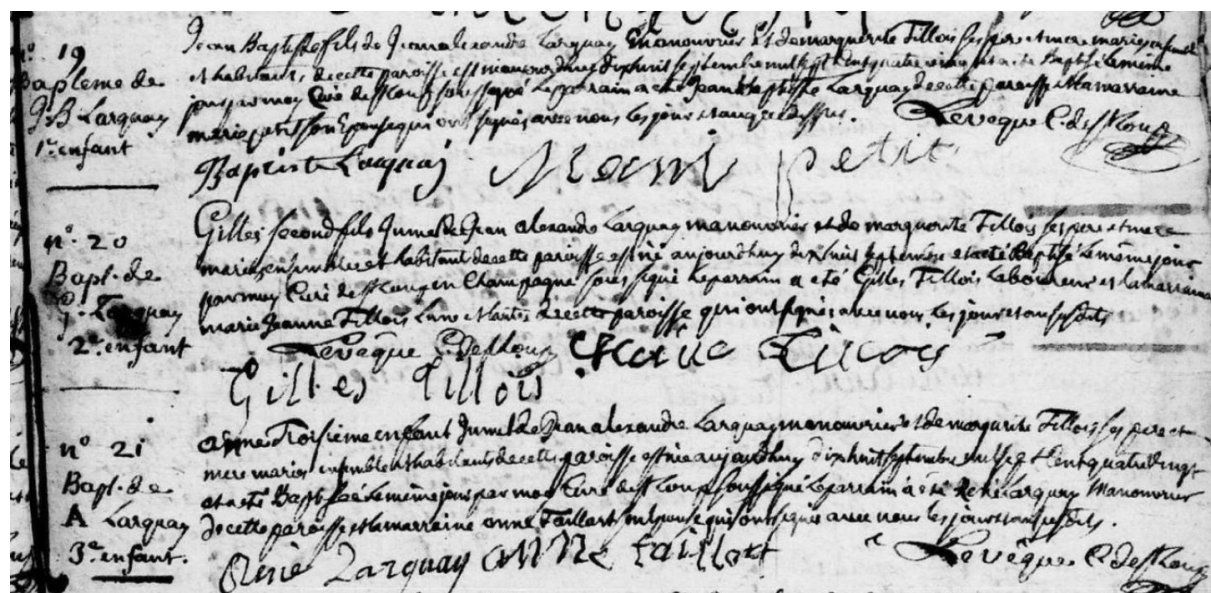 n.° 19
Baptême de
J. B. Larquay
1.er enfant
Jean Baptiste fils de Jean alexandre Larquay manouvrier et de marguerite Tillois ses pere et mere mariés ensemble
et habitants de cette paroisse est né aujourdhuy dixhuit septembre mil sept cent quatre vingt et a été Baptisé le même
jour par moy Curé de st Loup soussigné le parrain a été Jean Baptiste Larquay de cette paroisse et la marraine
marie petit son Epouse qui ont signés avec nous les jour et an que dessus. Levêque C. de st Loup
Baptiste Larquay marie petit
n.° 20
Bapt. de
g. Larquay
2.e enfant
Gilles second fils Jumel de Jean alexandre Larquay manouvrier et de marguerite Tillois ses pere et mere
mariés ensemble et habitant de cette paroisse est né aujourdhuy dixhuit septembre et a été Baptisé le même jour
par moy Curé de st Loup en Champagne soussigné le parrain a été Gilles Tillois Laboureur et la marraine
marie Jeanne Tillois de cette paroisse qui ont signés avec nous les jour et an susdits
Levêque C. de st Loup Tillois
Gilles Tillois
n° 21
Bapt. de
A Larquay
3.e enfant.
anne Troisieme enfant Jumel de Jean alexandre Larquay manouvrier et de marguerite Tillois ses pere et
mere mariés ensemble et habitants de cette paroisse est née aujourdhuy dixhuit septembre mil sept Cent quatre vingt
et a été Baptisée le même jour par moy Curé de st Loup soussigné le parrain a été René Larquay Manouvrier
de cette paroisse et la marraine anne Taillart son Epouse qui ont signés avec nous les jour et an susdits.
René Larquay anne taillart Levêque C. de st Loup